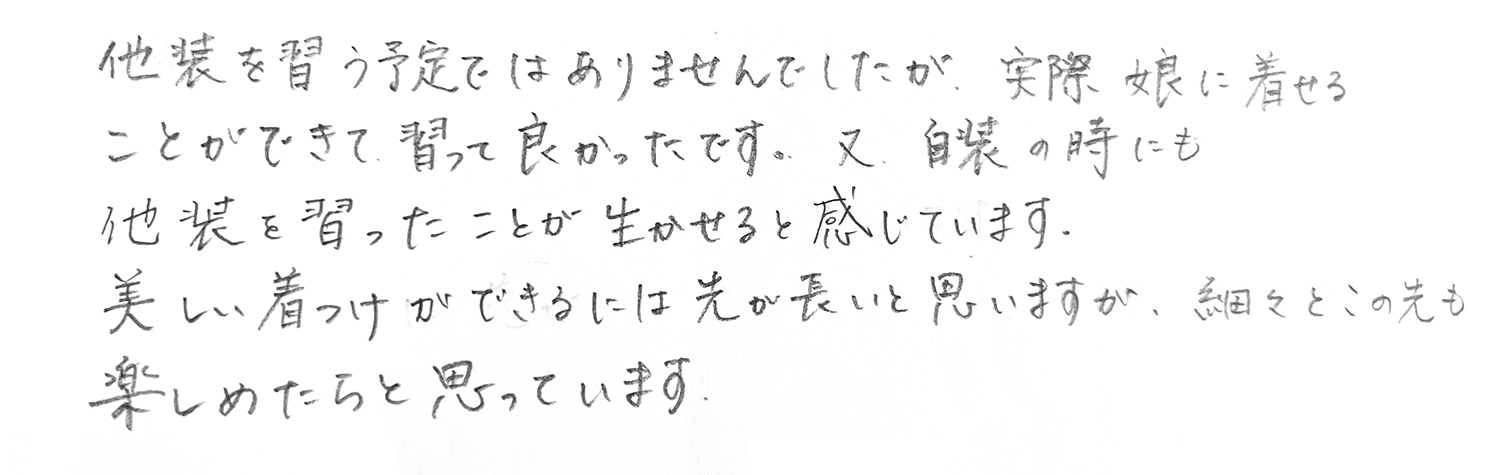 他装を習う予定ではありませんでしたが、実際 娘に着せる
ことができて、習って良かったです。又、自装の時にも
他装を習ったことが生かせると感じています。
美しい着つけができるには先が長いと思いますが、細々とこの先も
楽しめたらと思っています。